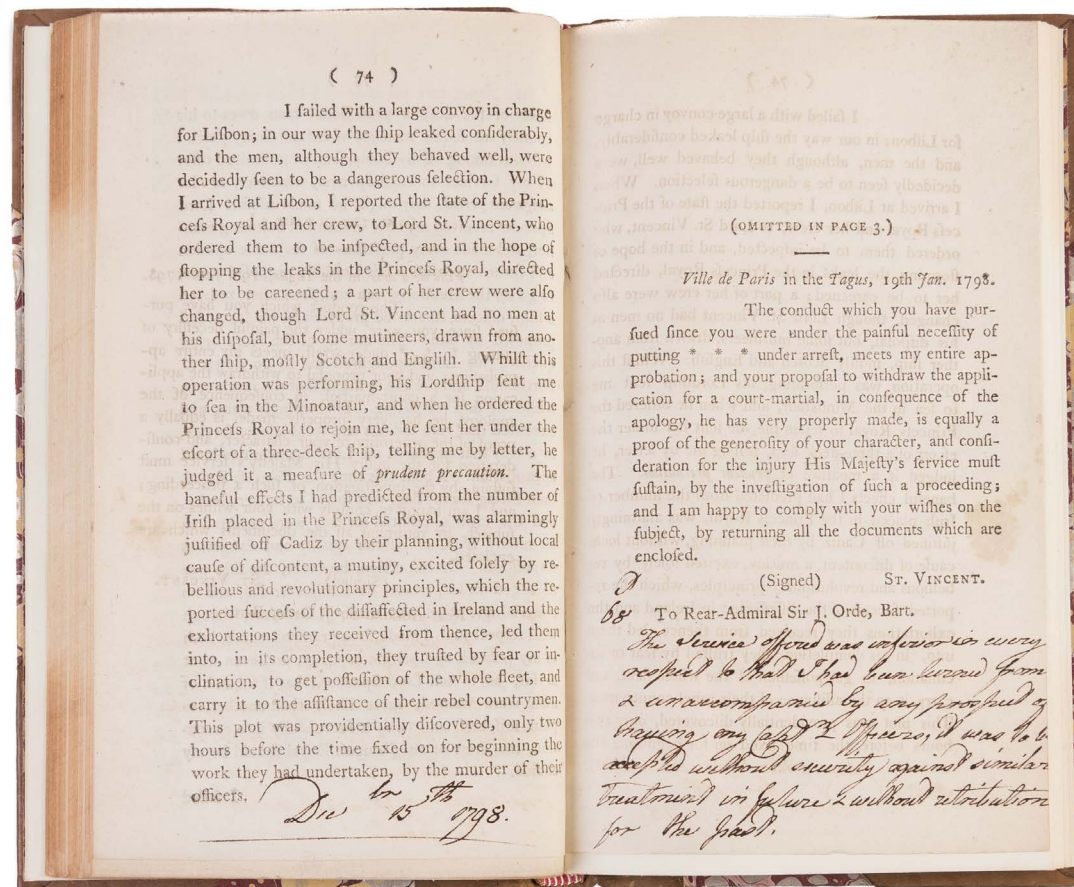 ( 74 )
I ſailed with a large convoy in charge
for Liſbon; in our way the ſhip leaked conſiderably,
and the men, although they behaved well, were
decidedly ſeen to be a dangerous ſelection. When
I arrived at Liſbon, I reported the ſtate of the Prin-
ceſs Royal and her crew, to Lord St. Vincent, who
ordered them to be inſpected, and in the hope of
ſtopping the leaks in the Princeſs Royal, directed
her to be careened; a part of her crew were alſo
changed, though Lord St. Vincent had no men at
his diſpoſal, but ſome mutineers, drawn from ano-
ther ſhip, moſtly Scotch and Engliſh. Whilſt this
operation was performing, his Lordſhip ſent me
to ſea in the Minoataur, and when he ordered the
Princeſs Royal to rejoin me, he ſent her under the
eſcort of a three-deck ſhip, telling me by letter, he
judged it a meaſure of prudent precaution. The
baneful effects I had predicted from the number of
Iriſh placed in the Princeſs Royal, was alarmingly
juſtified off Cadiz by their planning, without local
cauſe of diſcontent, a mutiny, excited ſolely by re-
bellious and revolutionary principles, which the re-
ported ſucceſs of the diſſaffected in Ireland and the
exhortations they received from thence, led them
into, in its completion, they truſted by fear or in-
clination, to get poſſeſſion of the whole fleet, and
carry it to the aſſiſtance of their rebel countrymen.
This plot was providentially diſcovered, only two
hours before the time fixed on for beginning the
work they had undertaken, by the murder of their
officers.
Decbr 15th 1798.
(OMITTED IN PAGE 3.)
Ville de Paris in the Tagus, 19th Jan. 1798.
The conduct which you have pur-
ſued ſince you were under the painful neceſſity of
putting * * * under arreſt, meets my entire ap-
probation; and your propoſal to withdraw the appli-
cation for a court-martial, in conſequence of the
apology, he has very properly made, is equally a
proof of the generoſity of your character, and conſi-
deration for the injury His Majeſty's ſervice muſt
ſuſtain, by the inveſtigation of ſuch a proceeding;
and I am happy to comply with your wiſhes on the
ſubject, by returning all the documents which are
encloſed.
(Signed) ST. VINCENT.
68 To Rear-Admiral Sir J. Orde, Bart.
The Service offered was inferior in every
respect to that I had been turned from
& unaccompanied by any prospect of
having my Captn & Officers, it was to be
accepted without security against similar
treatment in future & without retribution
for the past.